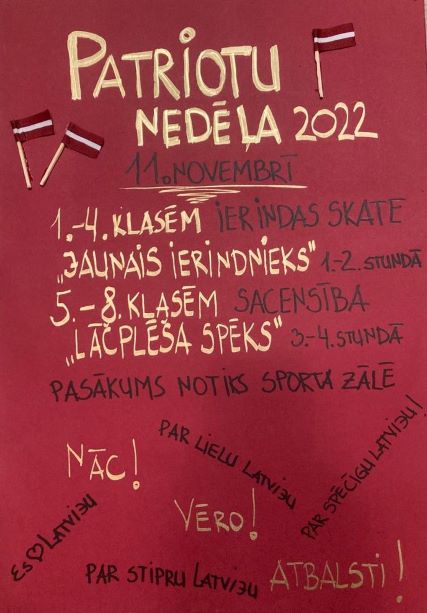 PATRIOTU
NEDĒĻA 2022
11. NOVEMBRĪ
1.-4. KLASĒM IERINDAS SKATE
„JAUNAIS IERINDNIEKS" 1.-2. STUNDĀ
5.-8. KLASĒM SACENSĪBA
„LĀČPLĒŠA SPĒKS" 3.-4. STUNDĀ
PASĀKUMS NOTIKS SPORTA ZĀLĒ
NĀC!
PAR LIELU LATVIJU
PAR SPĒCĪGU LATVIJU!
VĒRO!
ES ♡ LATVIJU
PAR STIPRU LATVIJU
ATBALSTI!